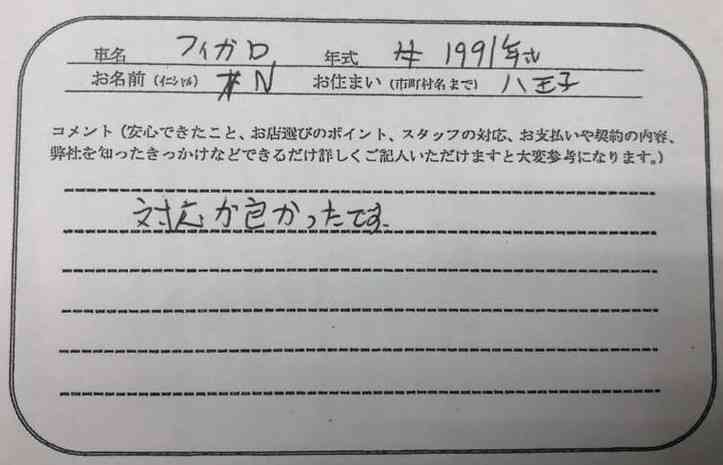 車名 フィガロ 年式 1991年式
お名前（イニシャル） N お住まい（市町村名まで） 八王子
コメント（安心できたこと、お店選びのポイント、スタッフの対応、お支払いや契約の内容、
弊社を知ったきっかけなどできるだけ詳しくご記入いただけますと大変参考になります。）
対応が良かったです。